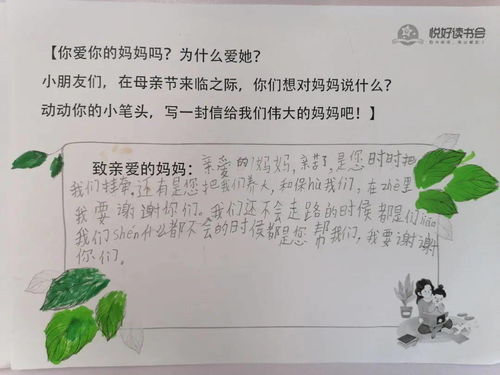 悦好读书会
【你爱你的妈妈吗？为什么爱她？
小朋友们，在母亲节来临之际，你们想对妈妈说什么？
动动你的小笔头，写一封信给我们伟大的妈妈吧！】
致亲爱的妈妈：亲爱的妈妈，辛苦了，是您时时把
我们挂念还有是您把我们养大，和保hù我们，在zhè里
我要谢谢你们。我们还不会走路的时候都是们jiāo
我们shén什么都不会的时候都是您帮我们，我要谢谢
你们。